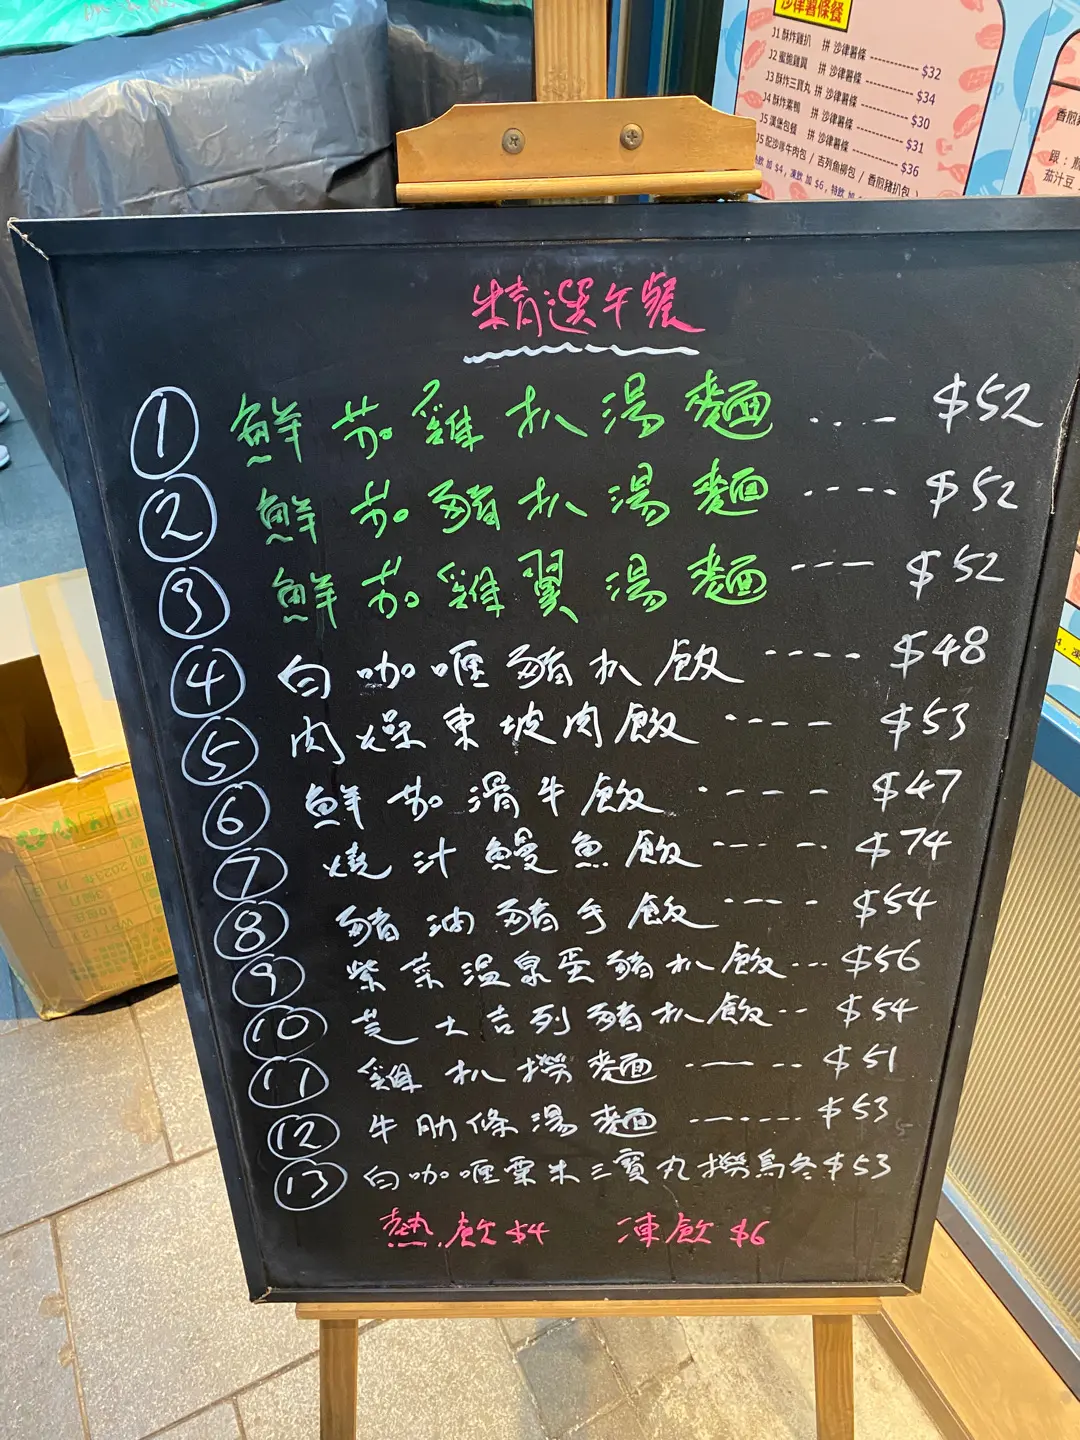 沙律薯條餐
J1 酥炸雞扒 拼 沙律薯條 ---------- $32
J2 蜜脆雞翼 拼 沙律薯條 ---------- $34
J3 酥炸三寶丸 拼 沙律薯條 ---------- $30
J4 酥炸素鴨 拼 沙律薯條 ---------- $31
J5 漢堡包餐 拼 沙律薯條 ---------- $36
J5 配沙嗲牛肉包 / 吉列魚柳包 / 香煎豬扒包
熱飲 加 $4, 凍飲 加 $6, 特飲 加
香煎
跟：
茄汁豆
精選午餐
① 鮮茄雞扒湯麵 .... $52
② 鮮茄豬扒湯麵 .... $52
③ 鮮茄雞翼湯麵 .... $52
④ 白咖喱豬扒飯 .... $48
⑤ 肉燥東坡肉飯 .... $53
⑥ 鮮茄滑牛飯 .... $47
⑦ 燒汁鰻魚飯 .... $74
⑧ 豬油豬手飯 .... $54
⑨ 紫菜溫泉蛋豬扒飯 ... $56
⑩ 芝士吉列豬扒飯 .. $54
⑪ 雞扒撈麵 .... $51
⑫ 牛肋條湯麵 ...... $53
⑬ 白咖喱粟米三寶丸撈烏冬 $53
熱飲 $4 凍飲 $6